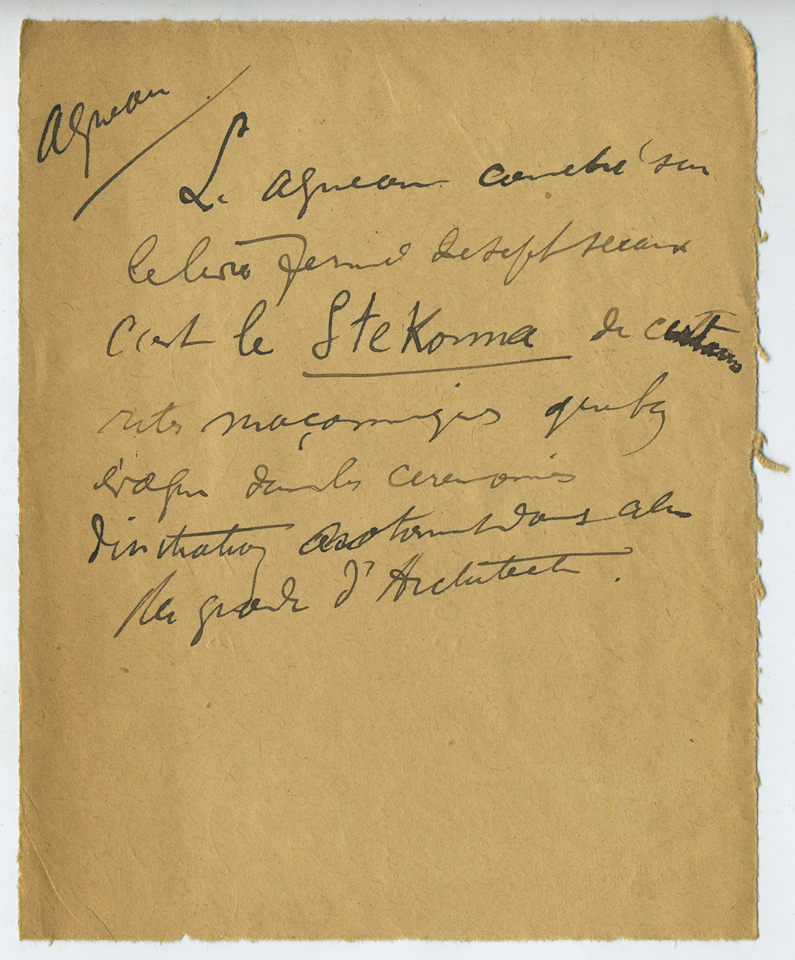 Agneau
L'agneau couché sur
le livre fermé de sept sceaux
c'est le Stekenna de certains
rites maçonniques qu'on
évoque dans les ceremonies
d'initiation dans celui
du grade d'Architecte.